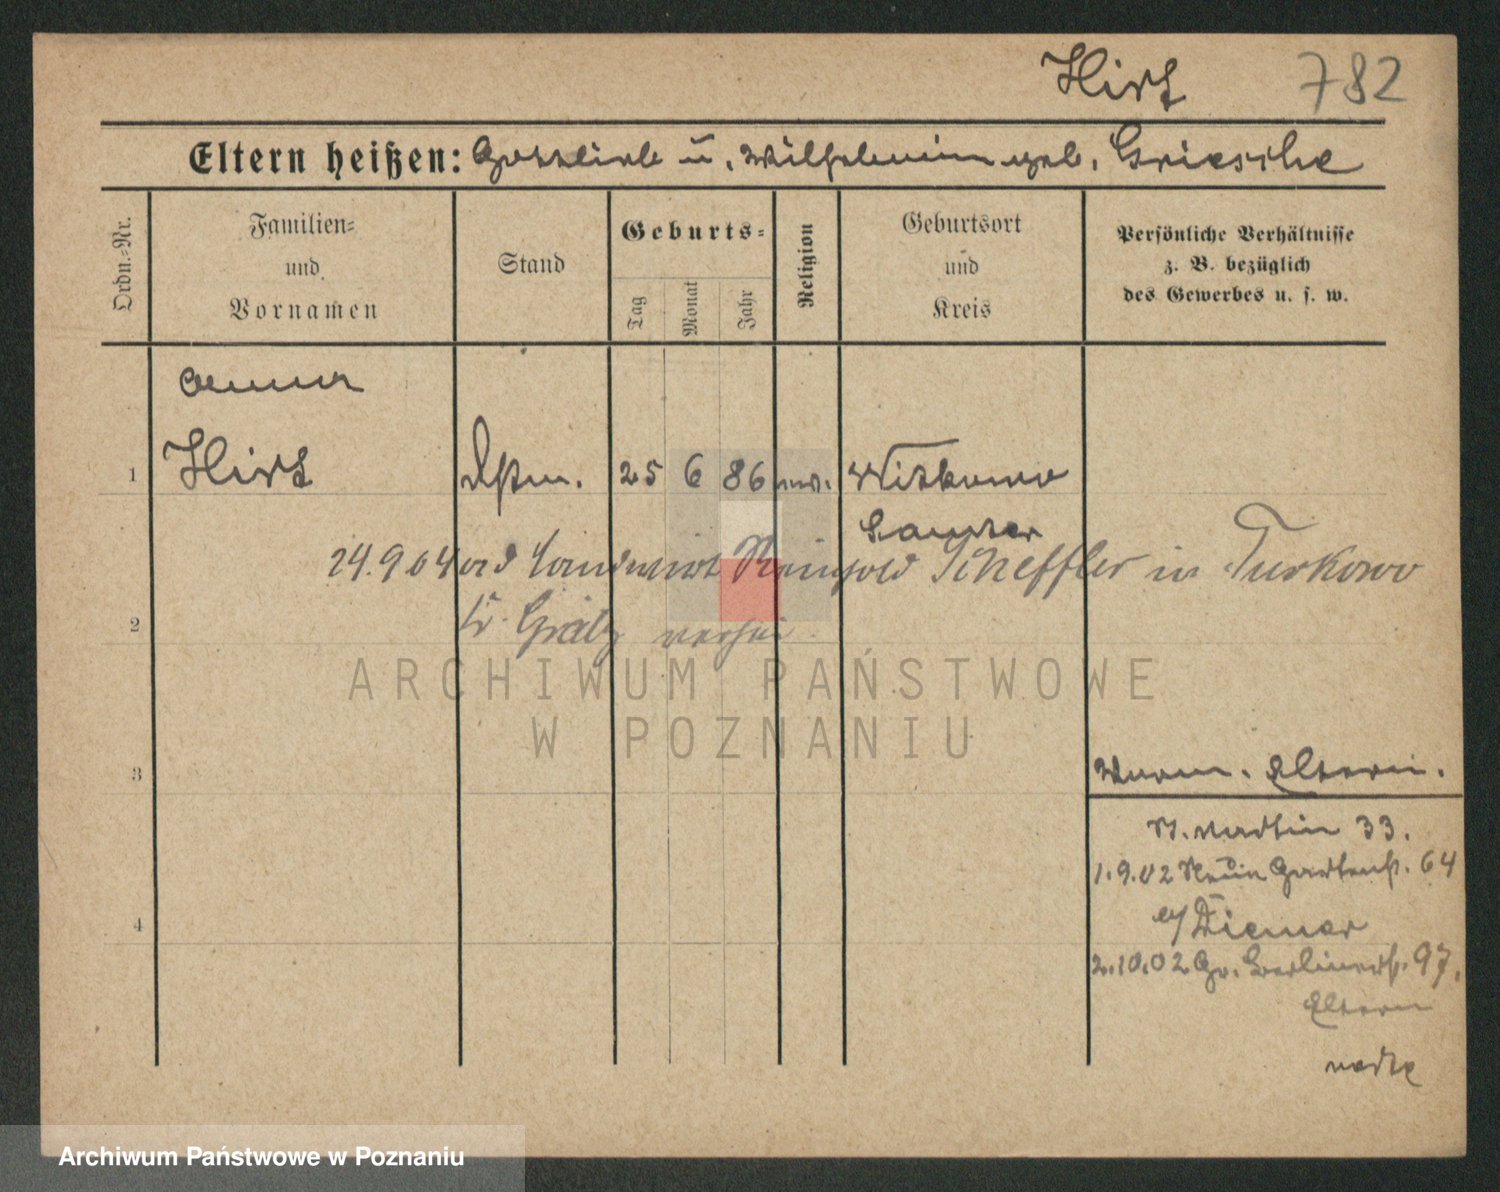 Hirt 782
Eltern heißen: Gottlieb u. Wilhelmine geb. Griesche
Ordn.-Nr.
Familien-
und
Vornamen
Stand
Geburts-
Tag
Monat
Jahr
Religion
Geburtsort
und
Kreis
Persönliche Verhältnisse
z. B. bezüglich
des Gewerbes u. s. w.
Anna
1 Hirt 25 6 86 Witkowo
Samter
24.9.04 Landwirt Reinhold Scheffler in Turkowo
2 Kr. Grätz verh
ARCHIWUM PAŃSTWOWE
W POZNANIU
3 Eltern.
St. Martin 33.
1.9.02 Gartenstr. 64
4 Diemer
2.10.02 Gr. Berlinerstr. 97.
Eltern
Archiwum Państwowe w Poznaniu